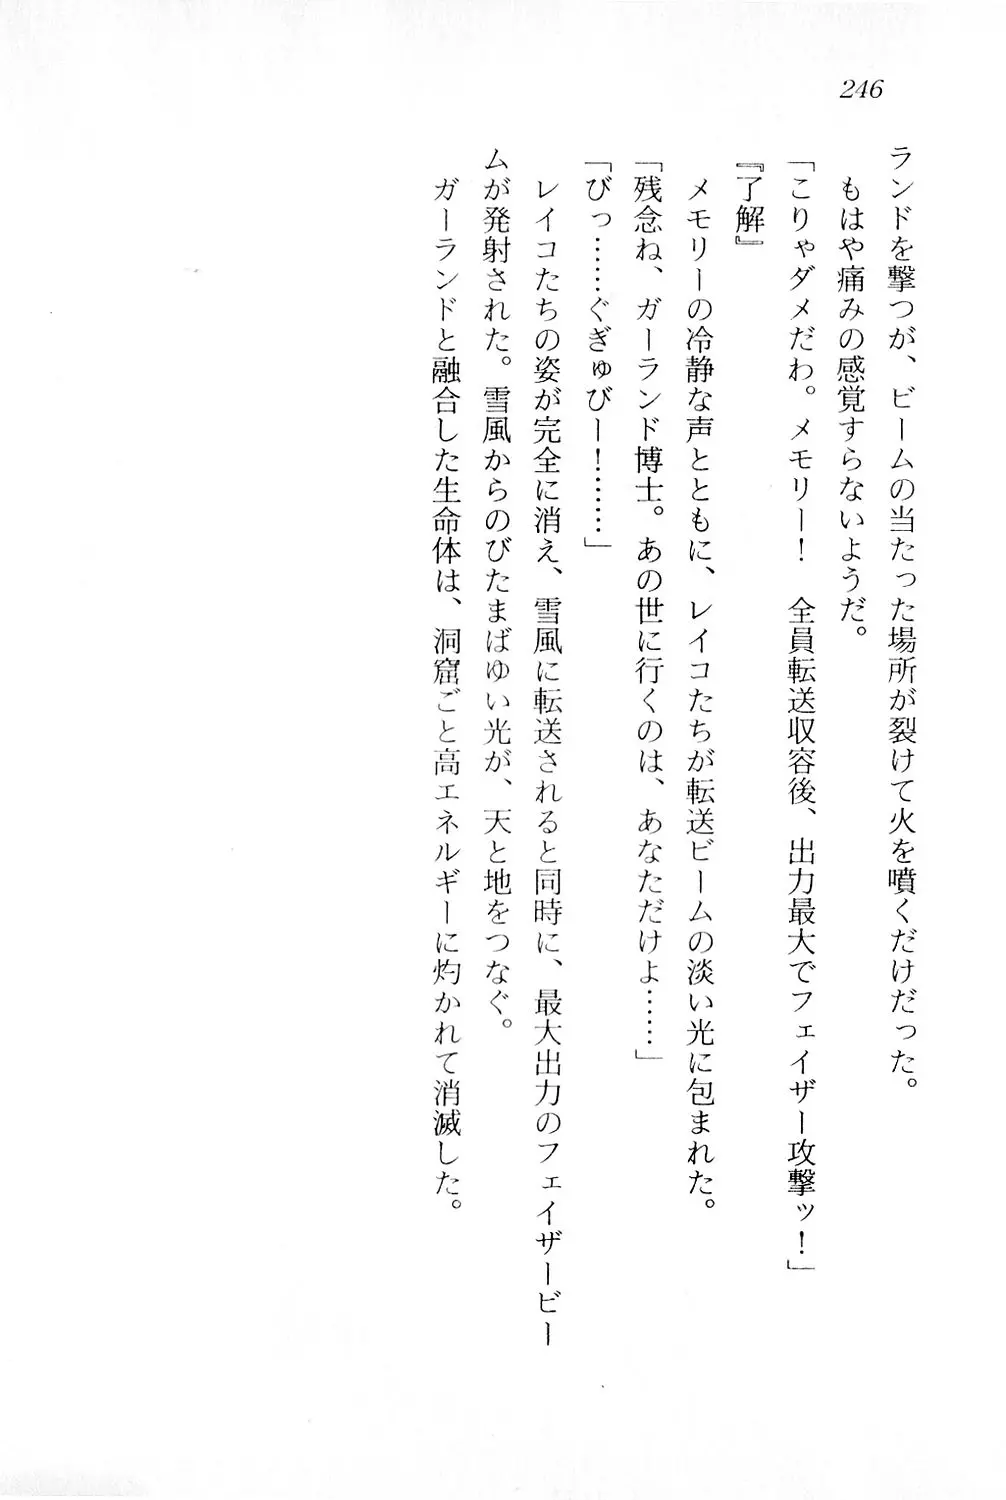 246
ランドを撃つが、ビームの当たった場所が裂けて火を噴くだけだった。
もはや痛みの感覚すらないようだ。
「こりゃダメだわ。メモリー！　全員転送収容後、出力最大でフェイザー攻撃ッ！」
『了解』
メモリーの冷静な声とともに、レイコたちが転送ビームの淡い光に包まれた。
「残念ね、ガーランド博士。あの世に行くのは、あなただけよ……」
「びっ……ぐぎゅびー！………」
レイコたちの姿が完全に消え、雪風に転送されると同時に、最大出力のフェイザービー
ムが発射された。雪風からのびたまばゆい光が、天と地をつなぐ。
ガーランドと融合した生命体は、洞窟ごと高エネルギーに灼かれて消滅した。